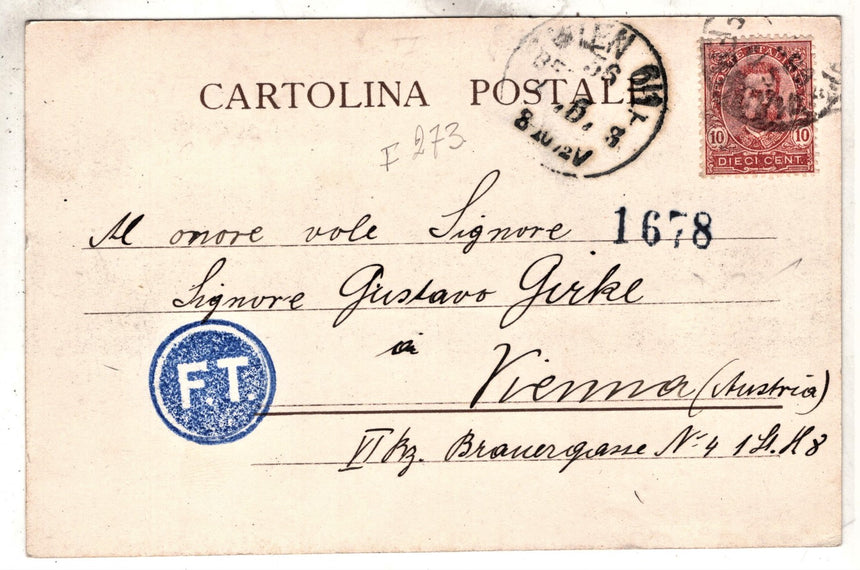 CARTOLINA POSTALE
WIEN 6/1
8
10 10
DIECI CENT.
F 273
Al onore vole Signore
1678
Signore Gustavo Girke
a
Vienna (Austria)
F.T.
VI Bz. Brauergasse No 4 1 St. H 8